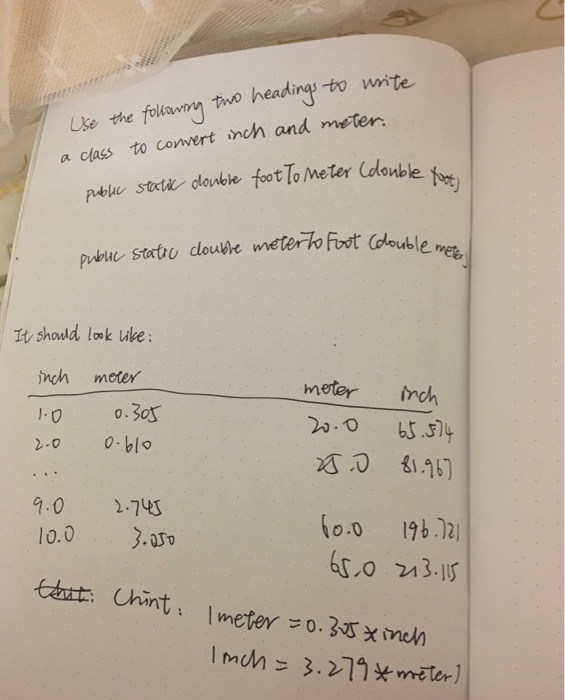 Use the following two headings to write
a class to convert inch and meter.
public static double footToMeter (double foot)
public static double meterToFoot (double meter)
It should look like:
inch meter
1.0 0.305
2.0 0.610
...
9.0 2.745
10.0 3.050
meter inch
20.0 65.574
25.0 81.967
60.0 196.721
65.0 213.115
(hint: 1 meter = 0.305 * inch
1 inch = 3.279 * meter)